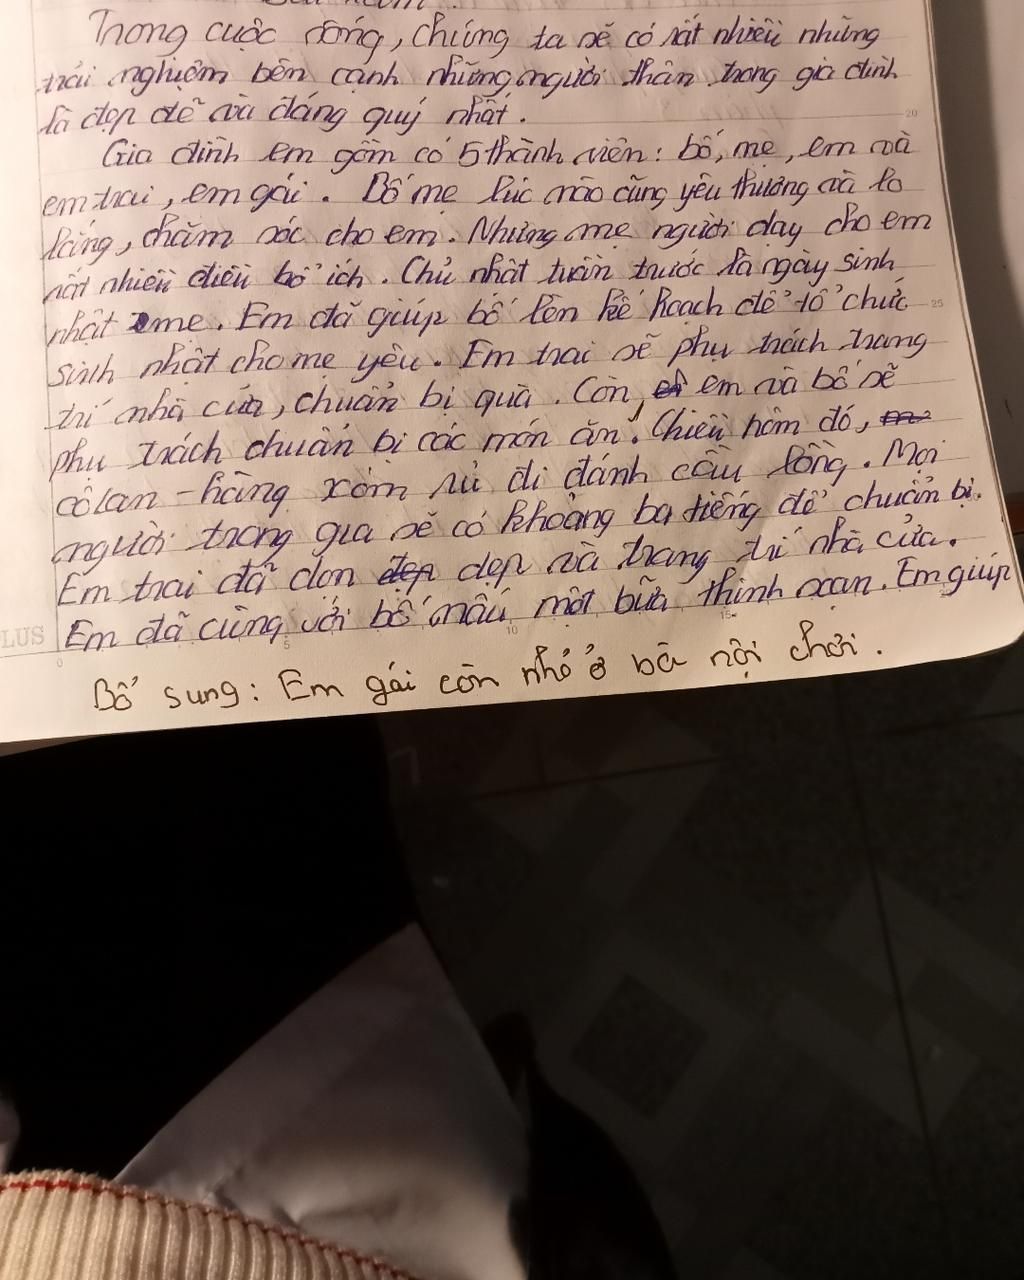 Trong cuộc sống, chúng ta sẽ có rất nhiều những
trải nghiệm bên cạnh những người thân trong gia đình
là đẹp đẽ và đáng quý nhất.
20
Gia đình em gồm có 5 thành viên: bố, mẹ, em và
em trai, em gái. Bố mẹ lúc nào cũng yêu thương và lo
lắng, chăm sóc cho em. Nhưng mẹ người dạy cho em
rất nhiều điều bổ ích. Chủ nhật tuần trước là ngày sinh
nhật mẹ. Em đã giúp bố lên kế hoạch để tổ chức
25
sinh nhật cho mẹ yêu. Em trai sẽ phụ trách trang
trí nhà cửa, chuẩn bị quà. Còn em và bố sẽ
phụ trách chuẩn bị các món ăn. Chiều hôm đó,
cô lan - hàng xóm rủ đi đánh cầu lông. Mọi
người trong gia sẽ có khoảng ba tiếng để chuẩn bị.
Em trai đã dọn dẹp và trang trí nhà cửa.
Em đã cùng với bố nấu một bữa thịnh soạn. Em giúp
LUS 0 5 10 15
Bổ sung: Em gái còn nhỏ ở bà nội chơi.